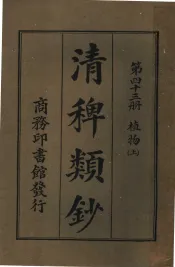 第四十五册 植物(上)
清稗類鈔
商務印書館發行